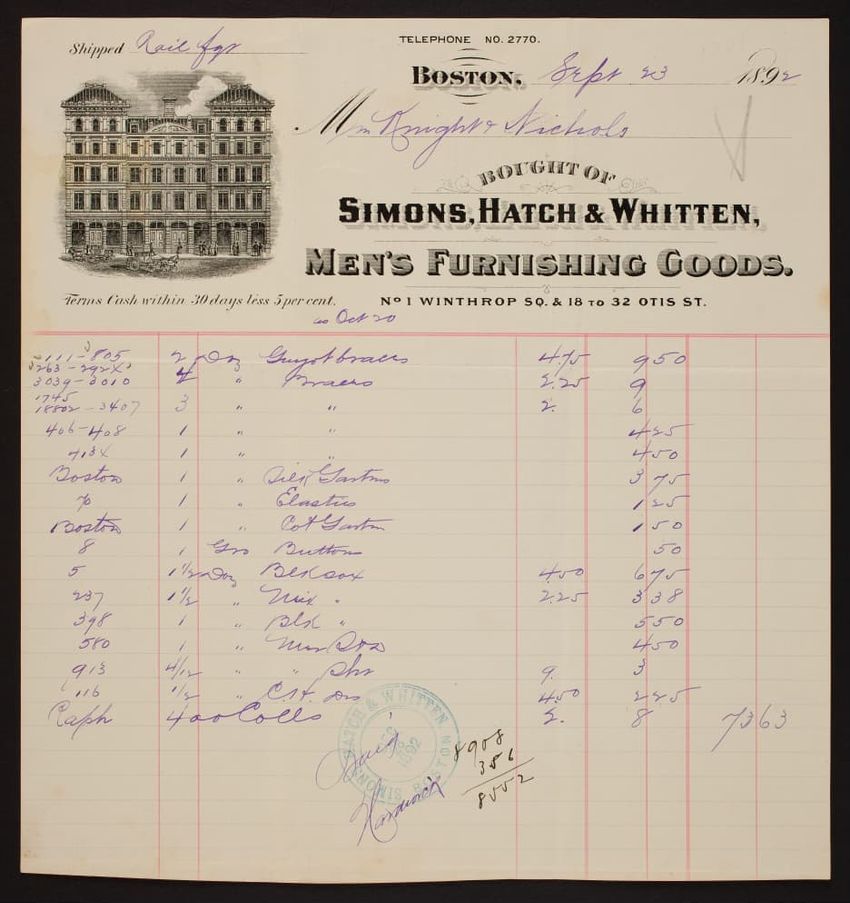 Shipped Rail fgr
TELEPHONE NO. 2770.
BOSTON, Sept 23 1892
M Knight & Nichols
BOUGHT OF
SIMONS, HATCH & WHITTEN,
MEN'S FURNISHING GOODS.
Terms Cash within 30 days less 5 per cent.
Nº 1 WINTHROP SQ. & 18 TO 32 OTIS ST.
as Oct 20
111-805 2 Doz Guyot braces 475 950
263-292X
3039-3010 4 " Braces 2.25 9
1745
18802-3407 3 " " 2. 6
406-408 1 " " 425
413X 1 " " 450
Boston 1 " Silk Garters 375
70 1 " Elastics 125
Boston 1 " Cot Garters 150
8 1 Gro Buttons 50
5 1 1/2 Doz Blk sox 450 675
237 1 1/2 " Mix " 2.25 338
398 1 " Blk " 550
580 1 " 450
913 4/12 " " Shs 9. 3
116 1/2 " Drs 450 225
Caph 400 Colls 2. 8 7363
HATCH & WHITTEN
1892
SIMONS BOSTON
Paid
8908
356
8552